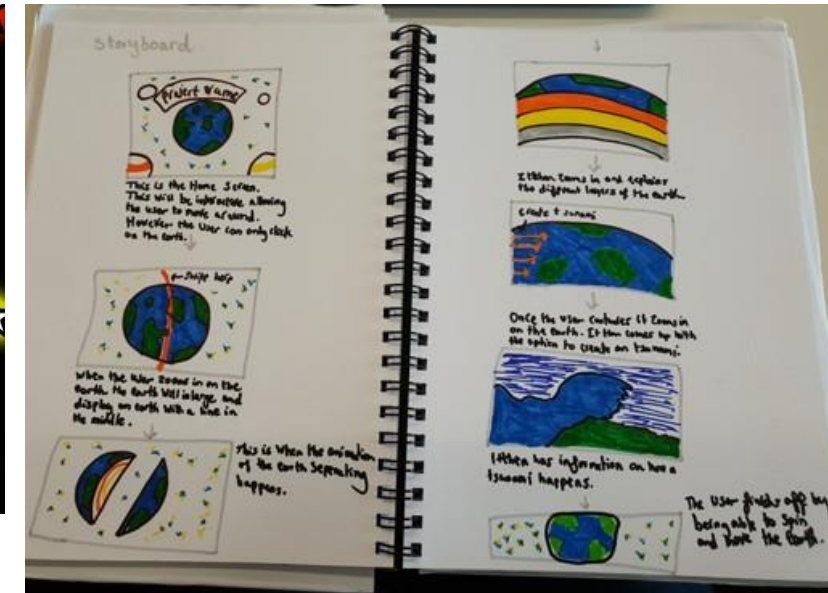 Storyboard
Project Name
This is the Home Screen.
This will be interactive allowing
the user to move around.
However the User can only click
on the earth.
Swipe help
when the user zooms in on the
earth the earth will inlarge and
display an earth with a line in
the middle.
This is when the animation
of the earth Seperating
happens.
It then zooms in and explains
the different layers of the earth.
create tsunami
Once the User continues it zooms in
on the earth. It then comes up with
the option to create an tsunami.
It then has information on how a
tsunami happens.
The User finishes off by
being able to spin
and move the Earth.